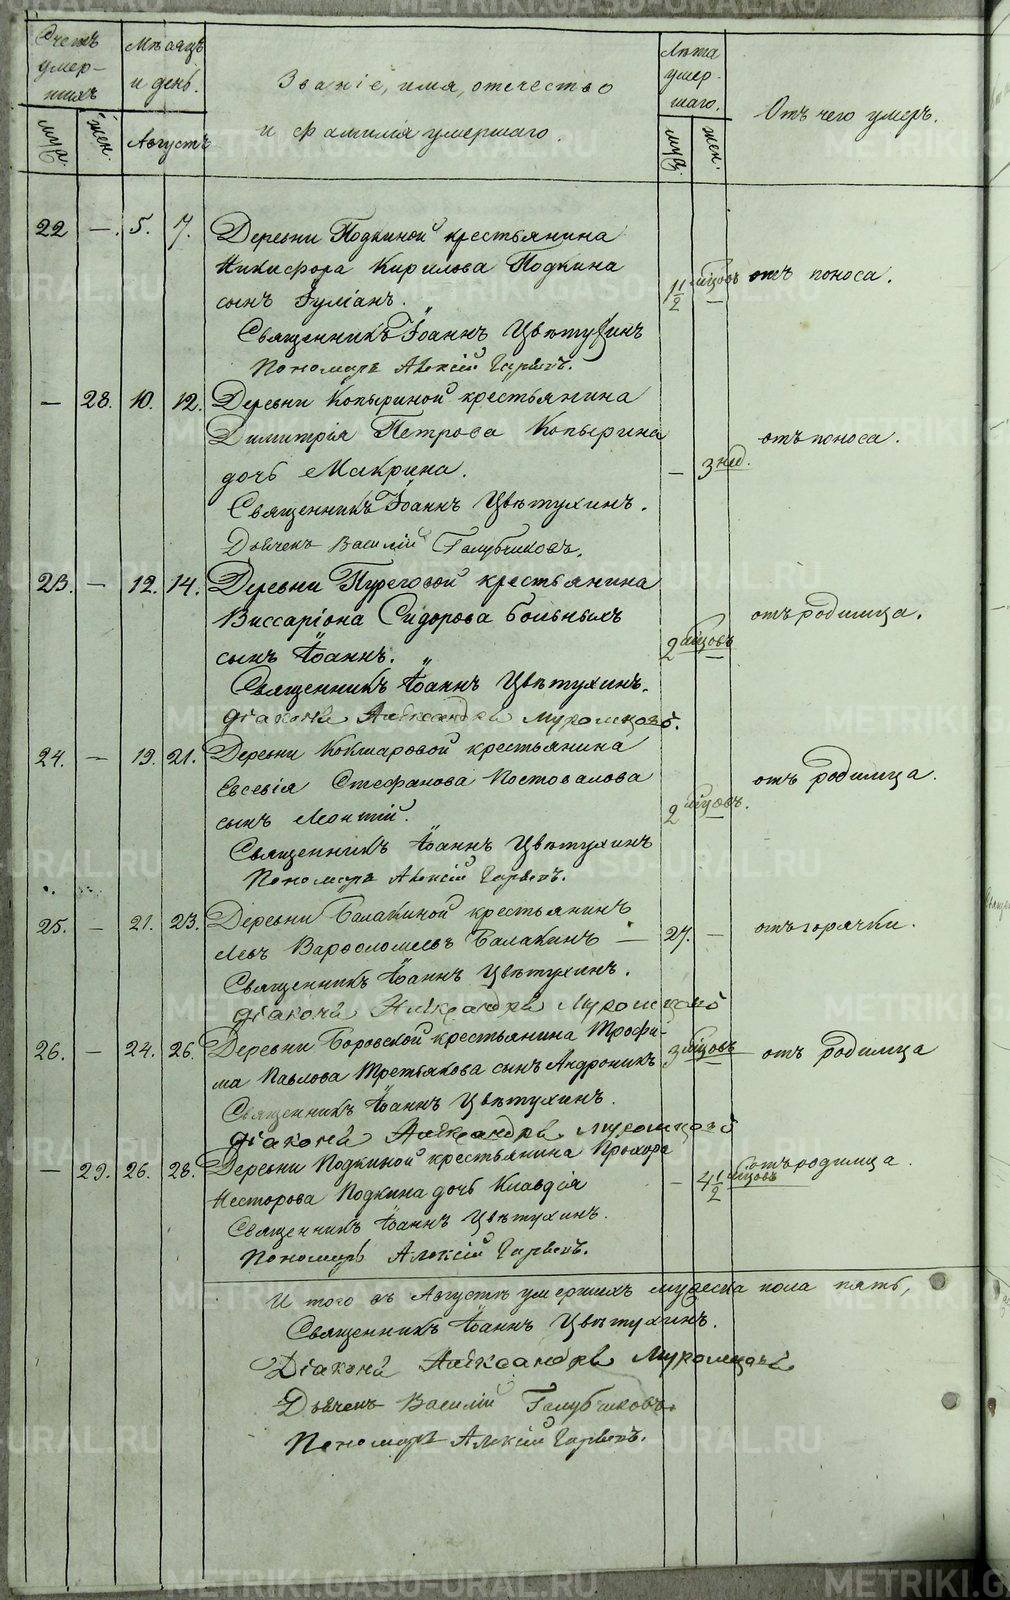 Счетъ умер-шихъ
Мѣсяцъ и день.
Званіе, имя, отчество
и фамилія умершаго.
Лѣта умер-шаго.
Отъ чего умеръ.
муж. жен. Августъ муж. жен.
22 — 5. 7. Деревни Подкиной крестьянина
Никифора Кирилова Подкина
сынъ Іуліанъ. 1½ мѣсцовъ отъ поноса.
Священникъ Іоаннъ Цвѣтухинъ
Пономарь Алексій
— 28. 10. 12. Деревни Копыриной крестьянина
Димитрія Петрова Копырина
дочь Макрина. — 3 нед. отъ поноса.
Священникъ Іоаннъ Цвѣтухинъ.
Дьячекъ Василій Голубчиковъ.
23. — 12. 14. Деревни Пуреговой крестьянина
Виссаріона Сидорова Больныхъ
сынъ Іоаннъ. 2 мѣсцовъ отъ родимца.
Священникъ Іоаннъ Цвѣтухинъ.
Діаконъ Александръ Муромцовъ.
24. — 19. 21. Деревни Кокшаровой крестьянина
Евсевія Стефанова Костовалова
сынъ Леонтій. 2 мѣсцовъ. отъ родимца.
Священникъ Іоаннъ Цвѣтухинъ
Пономарь Алексій
25. — 21. 23. Деревни Балакиной крестьянинъ
Левъ Варфоломеевъ Балакинъ — 27. — отъ горячки.
Священникъ Іоаннъ Цвѣтухинъ.
Діаконъ Александръ Муромцовъ
26. — 24. 26. Деревни Боровской крестьянина Трофи-
ма Павлова Третьякова сынъ Андроникъ 3 мѣсцовъ отъ родимца
Священникъ Іоаннъ Цвѣтухинъ.
Діаконъ Александръ Муромцовъ
— 29. 26. 28. Деревни Подкиной крестьянина Прохора
Несторова Подкина дочь Клавдія — 4½ мѣсцовъ отъ родимца.
Священникъ Іоаннъ Цвѣтухинъ.
Пономарь Алексій
И того въ Августѣ умершихъ мужеска пола пять,
Священникъ Іоаннъ Цвѣтухинъ.
Діаконъ Александръ Муромцовъ
Дьячекъ Василій Голубчиковъ.
Пономарь Алексій
METRIKI.GASO-URAL.RU